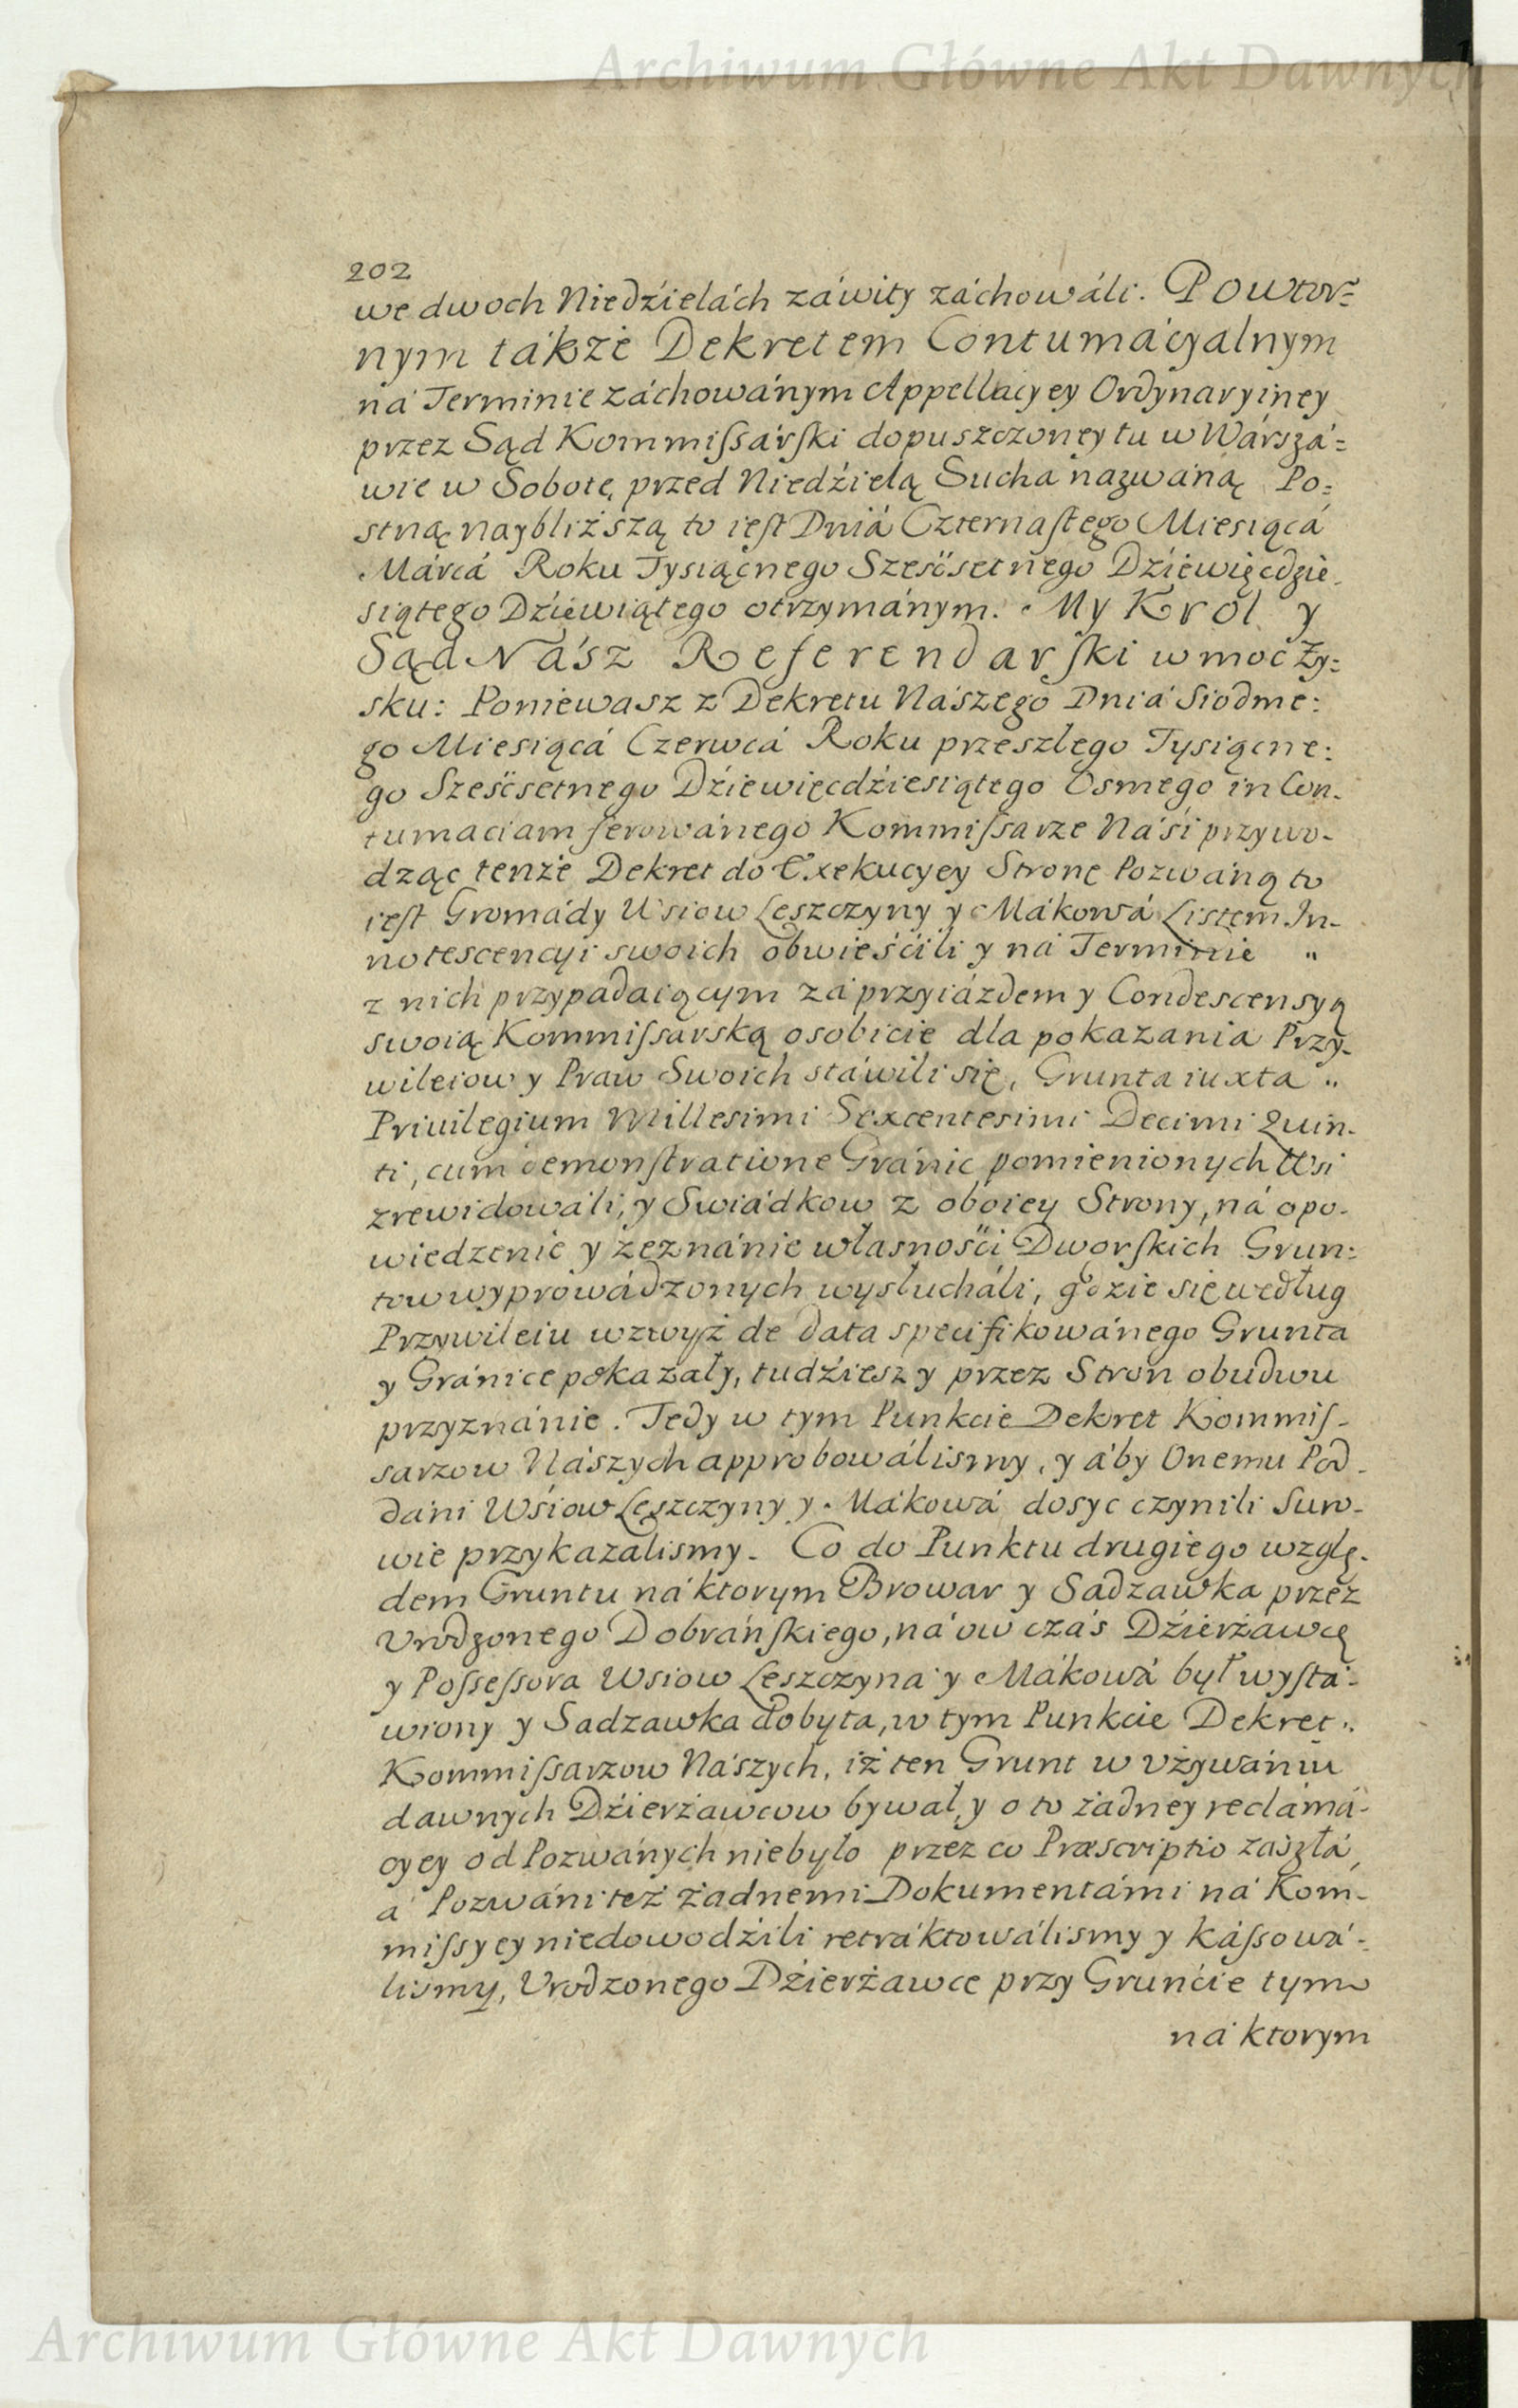 Archiwum Główne Akt Dawnych
202
we dwoch Niedźielách záwity záchowáli. Powtor=
nym tákże Dekretem Contumácyalnym
ná Terminie záchowánym Appellacyey Ordynaryiney
przez Sąd Kommiſsárſki dopuszczoney tu w Wárszá=
wie w Sobotę przed Niedźielą Sucha názwáną Po=
stną naybliższą to ieſt Dniá Czternaſtego Miesiącá
Márcá Roku Tysiącnego Sześćsetnego Dźiewięćdzie-
siątego Dźiewiątego otrzymánym. My Krol y
Sąd Nász Referendarſki w moc Zy=
sku: Poniewasz z Dekretu Nászego Dniá Siodme:
go Miesiącá Czerwcá Roku przeszlego Tysiącne:
go Sześćsetnego Dźiewięcdźiesiątego Osmego in Con-
tumaciam ferowánego Kommiſsarze Náśi przywo-
dząc tenże Dekret do Exekucyey Stronę Pozwáną to
ieſt Gromády Wsiow Leszczyny y Mákowá Listem In-
notescencyi swoich obwieśćili y ná Terminie "
z nich przypádaiącym zá przyiázdem y Condescensyą
swoią Kommiſsarską osobicie dla pokazania Przy-
wileiow y Praw Swoich stáwili się, Grunta iuxta "
Priuilegium Millesimi Sexcentesimi Decimi Quin-
ti, cum demonſtratione Gránic pomienionych Wsi
zrewidowáli, y Swiádkow z oboiey Strony, ná opo-
wiedzenie y zeznánie własnośći Dworſkich Grun:
tow wyprowádzonych wysłucháli, gdzie się według
Przywileiu wzwyż de data specifikowánego Grunta
y Gránice pokazały, tudźiesz y przez Stron obudwu
przyznánie. Tedy w tym Punkcie Dekret Kommiſ-
sarzow Nászych approbowálismy, y áby Onemu Pod-
dáni Wśiow Leszczyny y Mákowá dosyc czynili Suro-
wie przykazalismy. Co do Punktu drugiego wzglę-
dem Gruntu ná ktorym Browar y Sadzawka przez
Vrodzonego Dobráńſkiego, ná ow czás Dźierżawcę
y Poſseſsora Wsiow Leszczyna y Mákowá był wyſtá-
wiony y Sadzawka dobyta, w tym Punkcie Dekret "
Kommiſsarzow Nászych, iż ten Grunt w vżywániu
dawnych Dźierżawcow bywał, y o to żadney reclámá-
cyey od Pozwánych niebyło przez co Præscriptio zászłá,
á Pozwáni też żadnemi Dokumentámi ná Kom-
miſsyey niedowodźili retráktowálismy y káſsowá-
lismy, Vrodzonego Dźierżawce przy Gruńcie tym
ná ktorym
Archiwum Główne Akt Dawnych